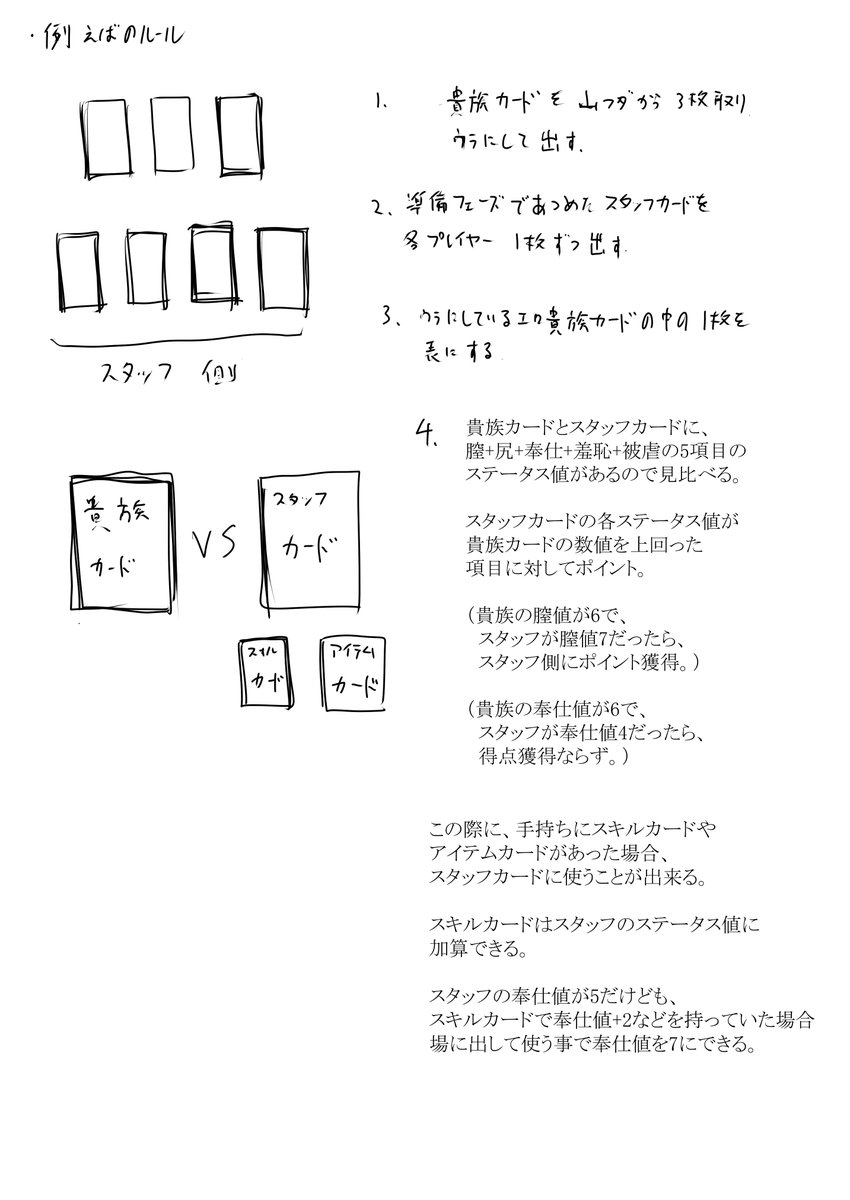 ・例えばのルール
1. 貴族カードを山フダから3枚取り
ウラにして出す.
2、準備フェーズであつめたスタッフカードを
各プレイヤー 1枚ずつ出す.
3、ウラにしているエロ貴族カードの中の1枚を
表にする
スタッフ 側
4. 貴族カードとスタッフカードに、
膣+尻+奉仕+羞恥+被虐の5項目の
ステータス値があるので見比べる。
スタッフカードの各ステータス値が
貴族カードの数値を上回った
項目に対してポイント。
（貴族の膣値が6で、
スタッフが膣値7だったら、
スタッフ側にポイント獲得。）
（貴族の奉仕値が6で、
スタッフが奉仕値4だったら、
得点獲得ならず。）
貴族
カード
VS
スタッフ
カード
スキル
カード
アイテム
カード
この際に、手持ちにスキルカードや
アイテムカードがあった場合、
スタッフカードに使うことが出来る。
スキルカードはスタッフのステータス値に
加算できる。
スタッフの奉仕値が5だけども、
スキルカードで奉仕値+2などを持っていた場合
場に出して使う事で奉仕値を7にできる。